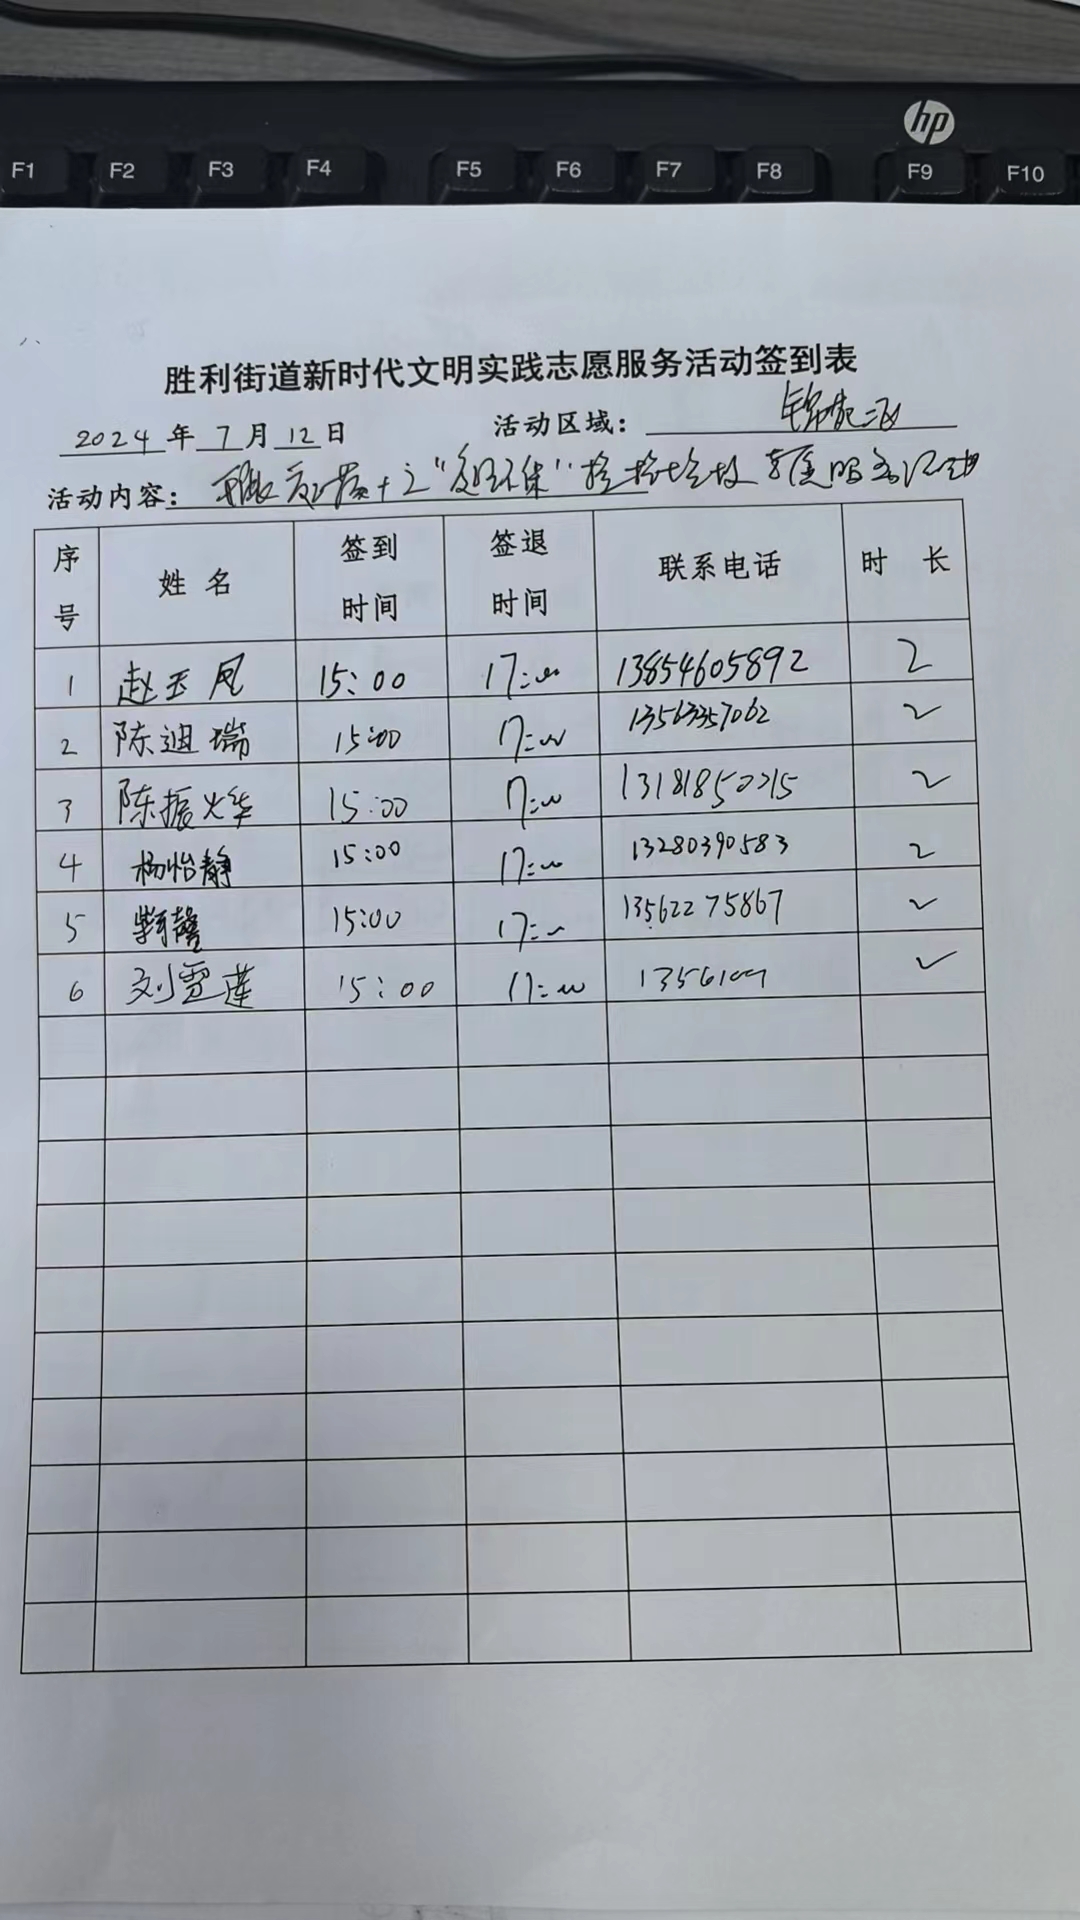 hp
F1 F2 F3 F4 F5 F6 F7 F8 F9 F10
胜利街道新时代文明实践志愿服务活动签到表
2024年7月12日 活动区域: 锦苑三区
活动内容: 捡拾垃圾志愿服务活动
序号 姓名 签到时间 签退时间 联系电话 时长
1 赵玉凤 15:00 17:00 13854605892 2
2 陈迪瑞 15:00 17:00 13563357062 2
3 陈振华 15:00 17:00 2
4 杨怡静 15:00 17:00 13280390583 2
5 15:00 17:00 13562275867 2
6 刘雪莲 15:00 17:00 2